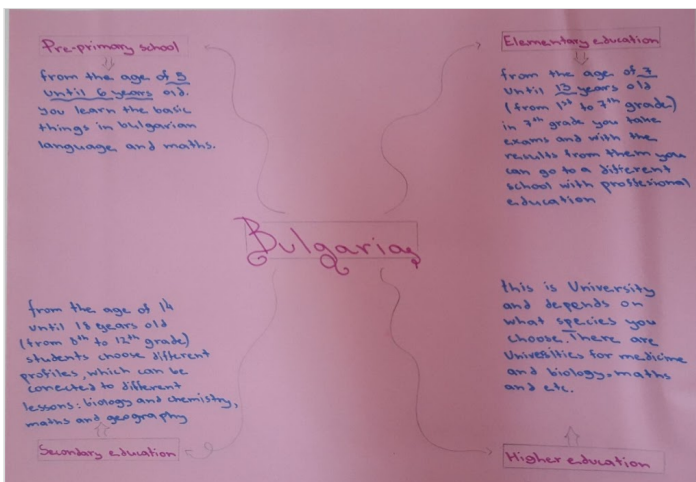 Pre-primary school
from the age of 5
until 6 years old.
You learn the basic
things in bulgarian
language and maths.
Elementary education
from the age of 7
until 13 years old
(from 1st to 7th grade)
in 7th grade you take
exams and with the
results from them you
can go to a different
school with proffesional
education
Bulgaria
from the age of 14
until 18 years old
(from 8th to 12th grade)
students choose different
profiles, which can be
conected to different
lessons: biology and chemistry,
maths and geography
Secondary education
this is University
and depends on
what species you
choose. There are
Universities for medicine
and biology, maths
and etc.
Higher education